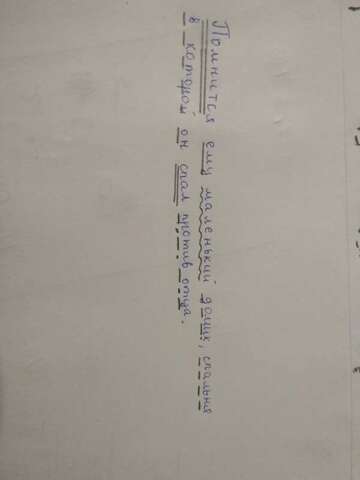 Помнится ему маленький домик, спальня
в которой он спал против отца.